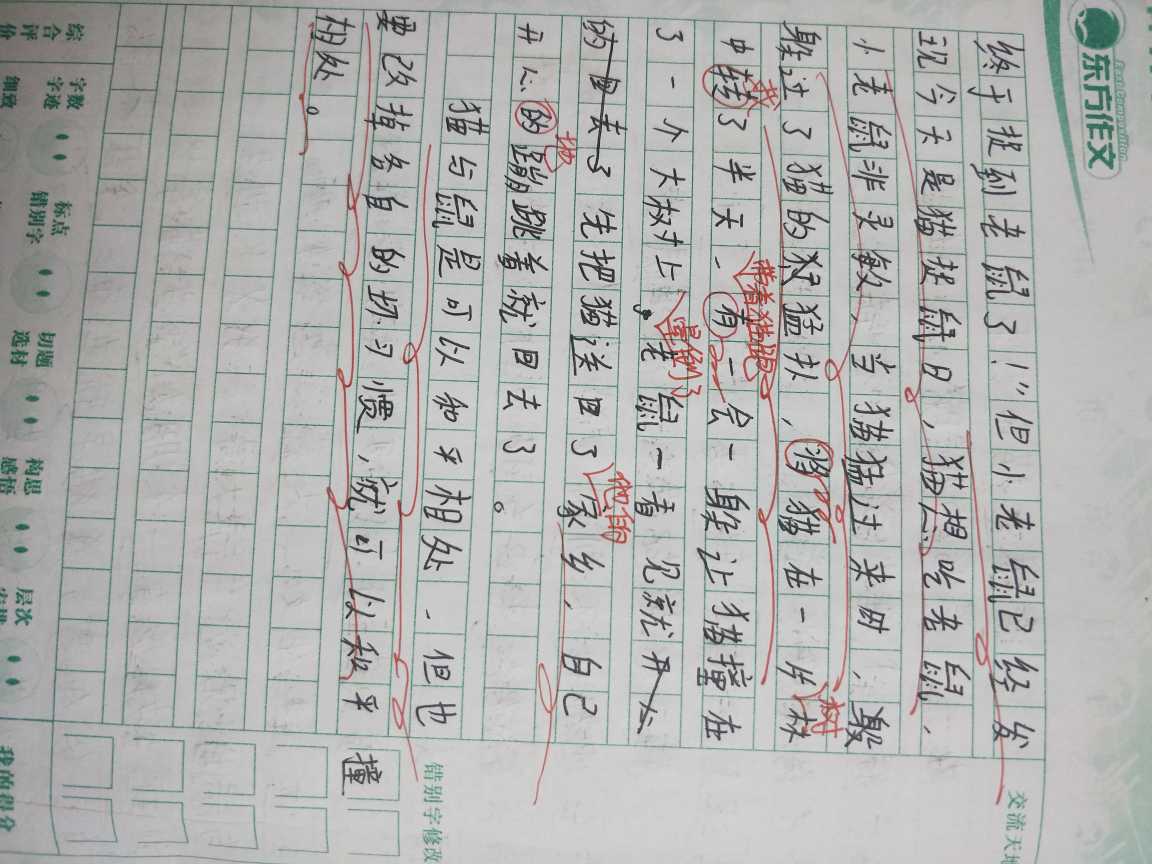 东方作文
East Composition
交流天地
终于捉到老鼠了！”但小老鼠已经发
现今天是猫捉鼠日，猫想吃老鼠、
小老鼠非灵敏，当猫猛过来时，鼠
躲过了猫的猛扑，将猫在一片林
树
中转了半天、有一会一躲让猫撞在
带着猫跑
了一个大树上，老鼠一看见就开心
星倒了
的回去了先把猫送回了家乡，自己
他的
开心的蹦跳着就回去了。
地
猫与鼠是可以和平相处、但也
要改掉各自的坏习惯，就可以和平
相处。
错别字修改
撞
综合评价
字数
字迹
细数
标点
错别字
切题
选材
构思
感悟
层次
我的得分